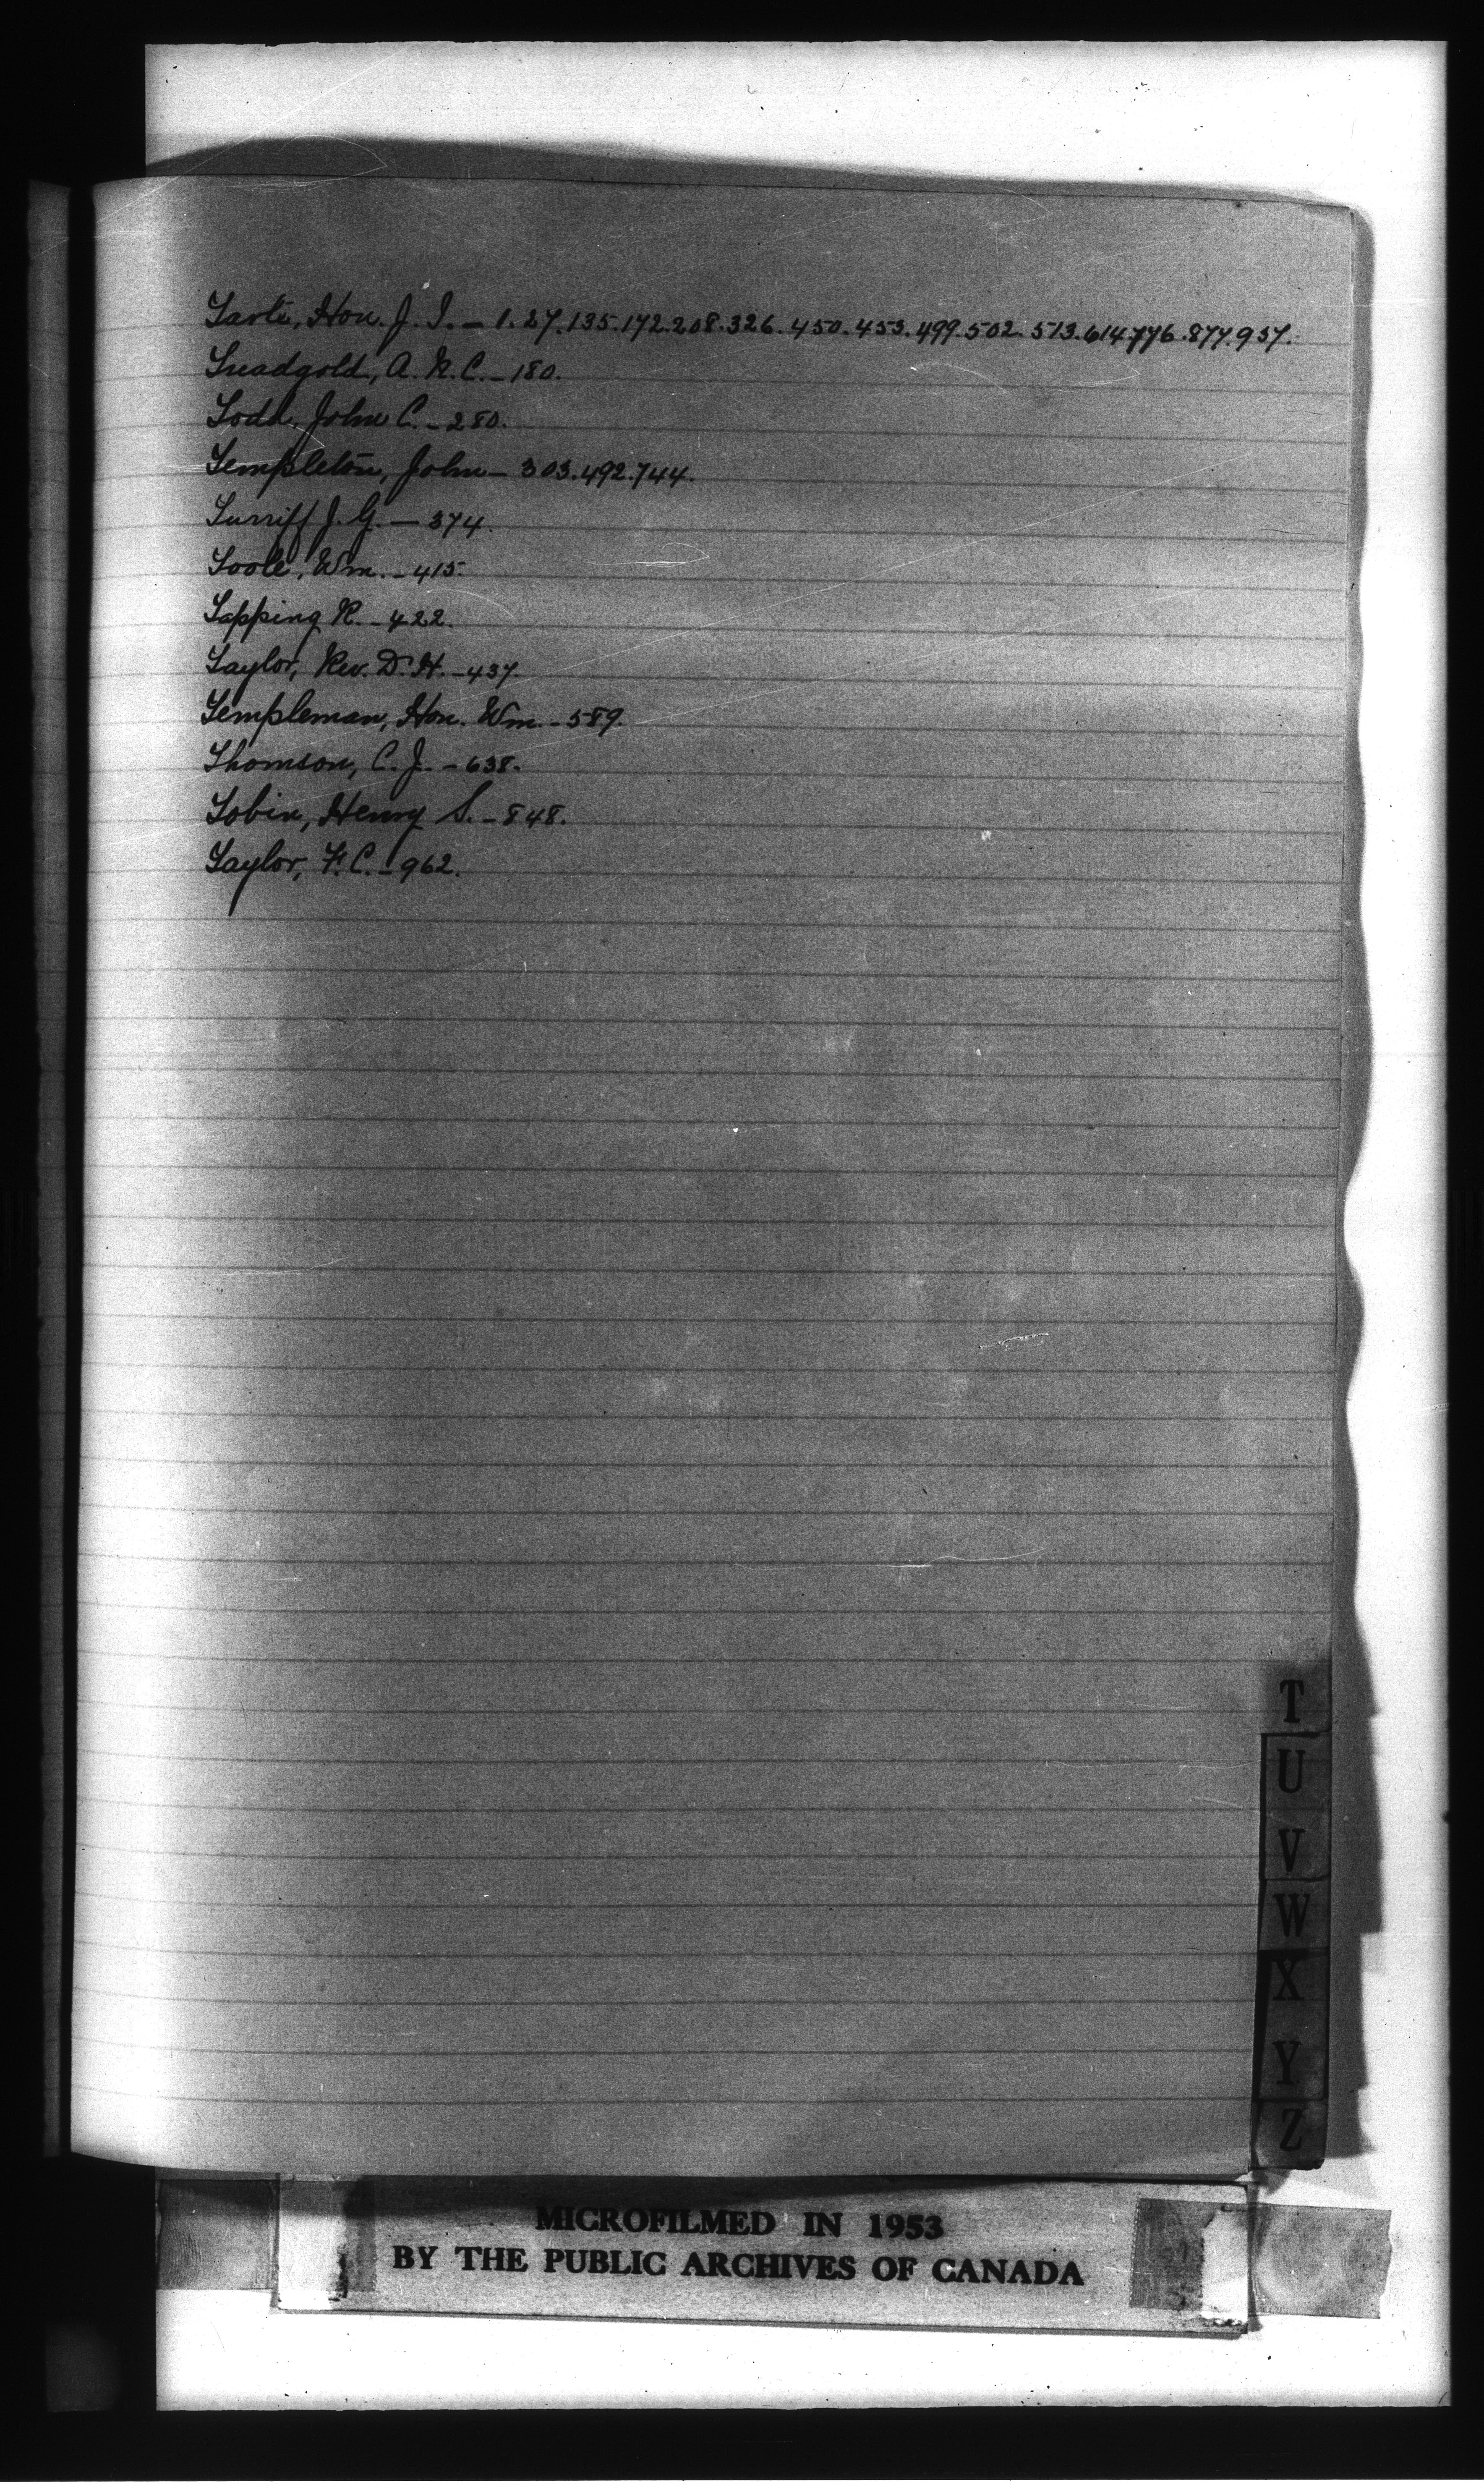 Tarte, Hon. J. I. – 1.27.135.172.208.326.450.453.499.502.513.614.776.877.937.
Treadgold, A. N. C. – 180.
Todd, John C. – 280.
Templeton, John – 303.492.744.
Turriff J. G. – 374.
Toole, Wm. – 415.
Tapping R. – 422.
Taylor, Rev. D. H. – 437.
Templeman, Hon. Wm. – 589.
Thomson, C. J. – 638.
Tobin, Henry S. – 848.
Taylor, F. C. – 962.
T
U
V
W
X
Y
Z
MICROFILMED IN 1953
BY THE PUBLIC ARCHIVES OF CANADA